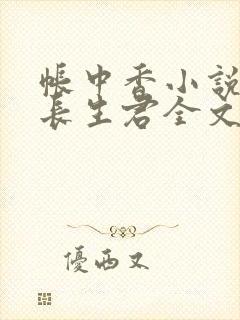 帳中香小說
長生君全文
優西又